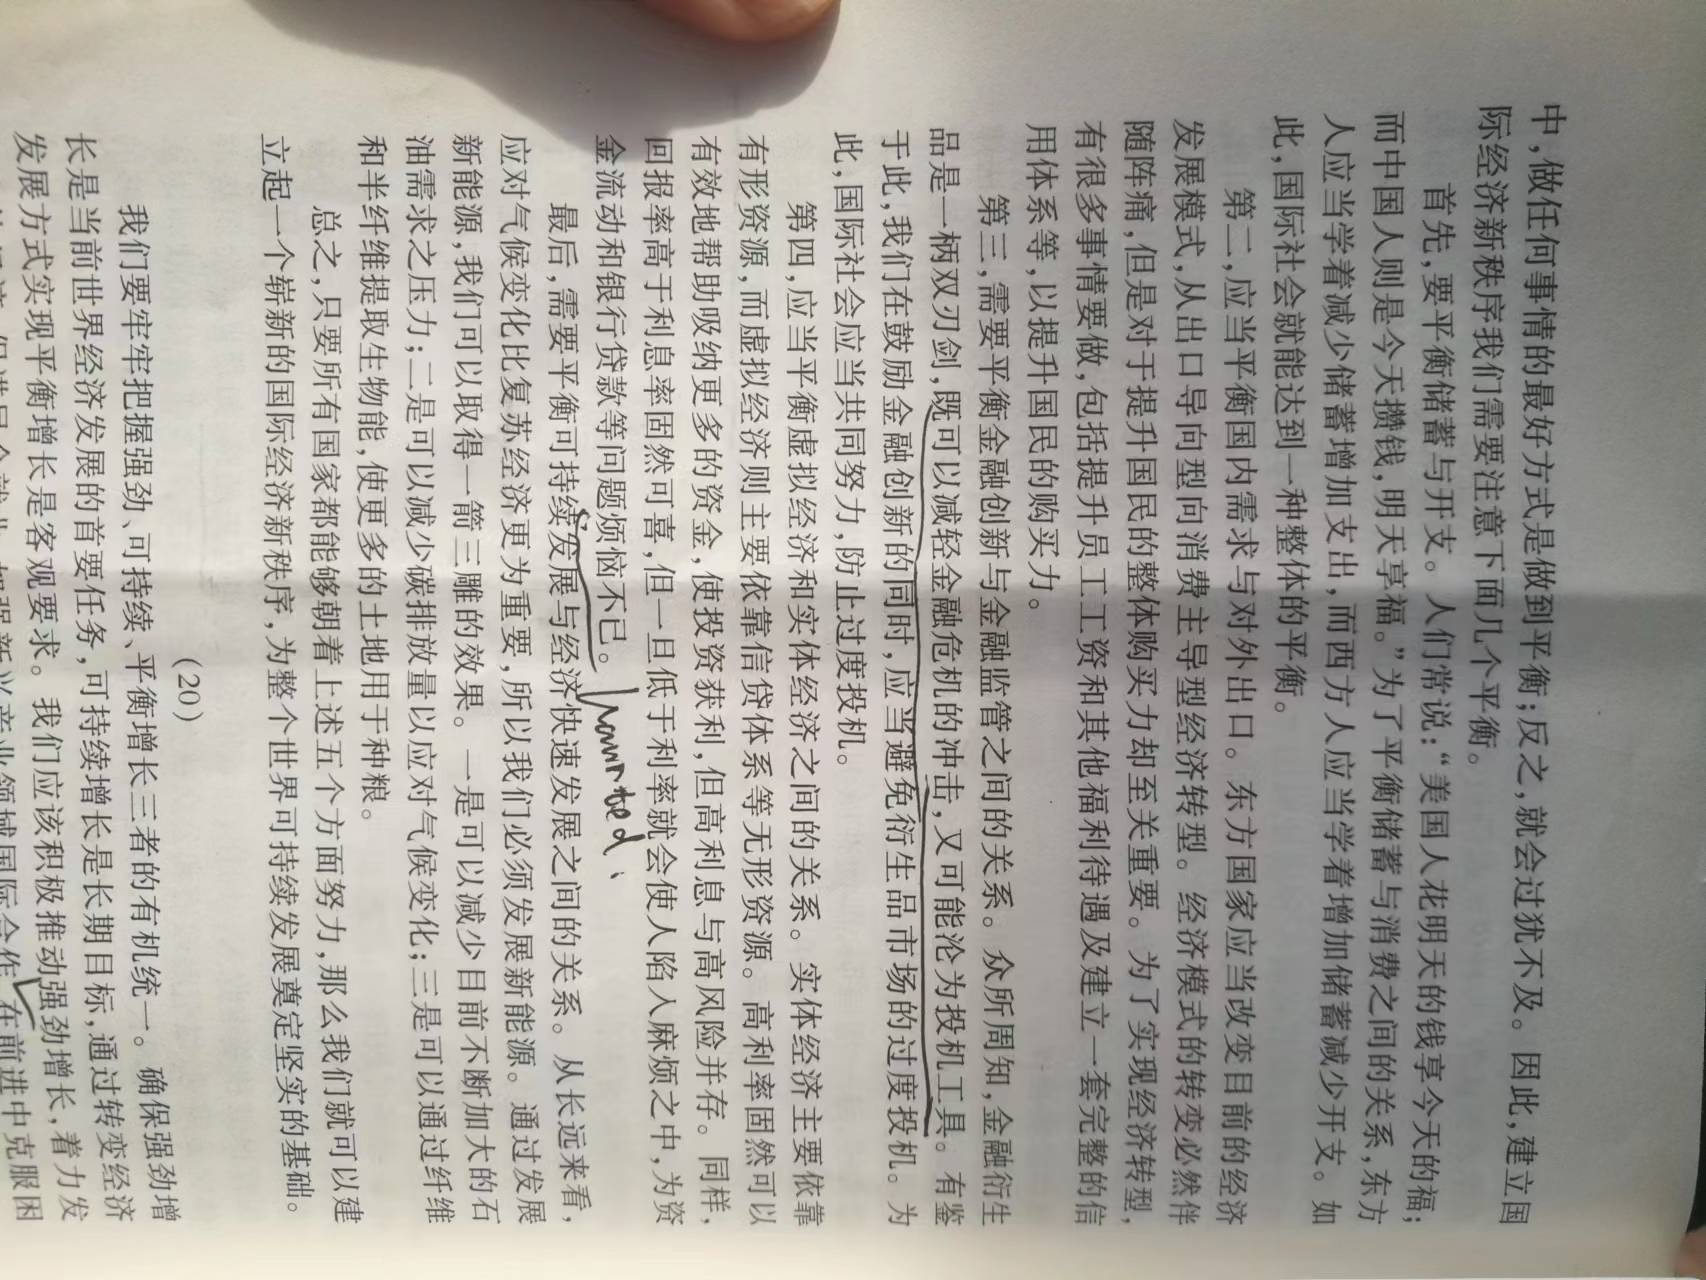 中,做任何事情的最好方式是做到平衡;反之,就会过犹不及。因此,建立国
际经济新秩序我们需要注意下面几个平衡。
首先,要平衡储蓄与开支。人们常说:“美国人花明天的钱享今天的福;
而中国人则是今天攒钱,明天享福。”为了平衡储蓄与消费之间的关系,东方
人应当学着减少储蓄增加支出,而西方人应当学着增加储蓄减少开支。如
此,国际社会就能达到一种整体的平衡。
第二,应当平衡国内需求与对外出口。东方国家应当改变目前的经济
发展模式,从出口导向型向消费主导型经济转型。经济模式的转变必然伴
随阵痛,但是对于提升国民的整体购买力却至关重要。为了实现经济转型,
有很多事情要做,包括提升员工工资和其他福利待遇及建立一套完整的信
用体系等,以提升国民的购买力。
第三,需要平衡金融创新与金融监管之间的关系。众所周知,金融衍生
品是一柄双刃剑,既可以减轻金融危机的冲击,又可能沦为投机工具。有鉴
于此,我们在鼓励金融创新的同时,应当避免衍生品市场的过度投机。为
此,国际社会应当共同努力,防止过度投机。
第四,应当平衡虚拟经济和实体经济之间的关系。实体经济主要依靠
有形资源,而虚拟经济则主要依靠信贷体系等无形资源。高利率固然可以
有效地帮助吸纳更多的资金,使投资获利,但高利息与高风险并存。同样,
回报率高于利息率固然可喜,但一旦低于利率就会使人陷入麻烦之中,为资
金流动和银行贷款等问题烦恼不已。 haunted
最后,需要平衡可持续发展与经济快速发展之间的关系。从长远来看,
应对气候变化比复苏经济更为重要,所以我们必须发展新能源。通过发展
新能源,我们可以取得一箭三雕的效果。一是可以减少目前不断加大的石
油需求之压力;二是可以减少碳排放量以应对气候变化;三是可以通过纤维
和半纤维提取生物能,使更多的土地用于种粮。
总之,只要所有国家都能够朝着上述五个方面努力,那么我们就可以建
立起一个崭新的国际经济新秩序,为整个世界可持续发展奠定坚实的基础。
(20)
我们要牢牢把握强劲、可持续、平衡增长三者的有机统一。确保强劲增
长是当前世界经济发展的首要任务,可持续增长是长期目标,通过转变经济
发展方式实现平衡增长是客观要求。我们应该积极推动强劲增长,着力发
加强新兴产业领域国际合作,在前进中克服困